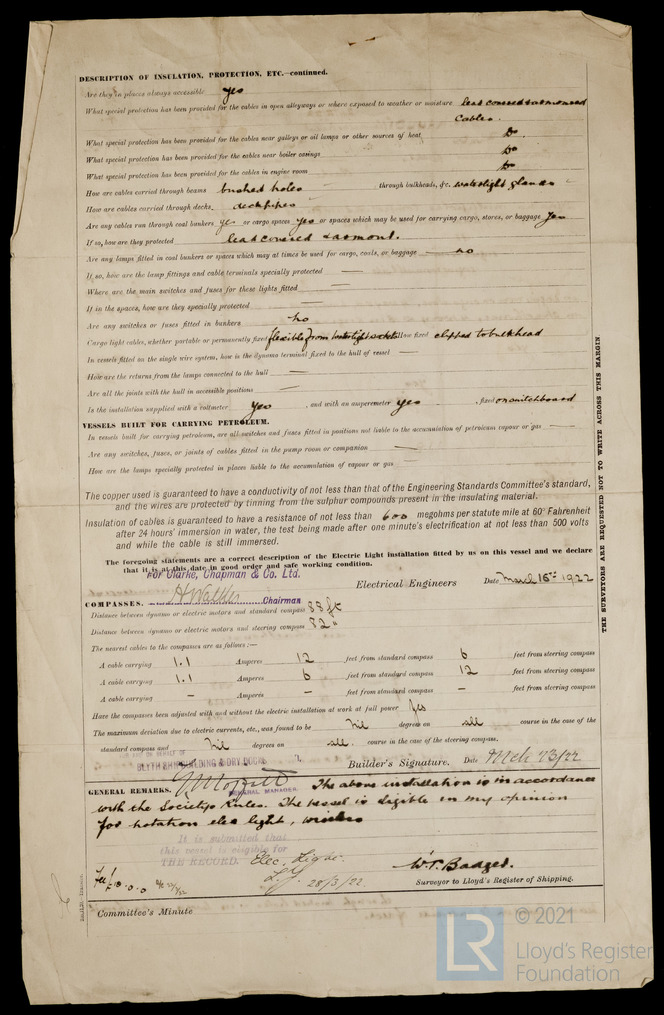 DESCRIPTION OF INSULATION, PROTECTION, ETC.—continued.
Are they in places always accessible yes
What special protection has been provided for the cables in open alleyways or where exposed to weather or moisture lead covered & armoured
Cables.
What special protection has been provided for the cables near galleys or oil lamps or other sources of heat Do.
What special protection has been provided for the cables near boiler casings Do
What special protection has been provided for the cables in engine room Do
How are cables carried through beams bushed holes through bulkheads, &c. watertight glands
How are cables carried through decks deckpipes
Are any cables run through coal bunkers yes or cargo spaces yes or spaces which may be used for carrying cargo, stores, or baggage yes
If so, how are they protected lead covered & armont.
Are any lamps fitted in coal bunkers or spaces which may at times be used for cargo, coals, or baggage no
If so, how are the lamp fittings and cable terminals specially protected —
Where are the main switches and fuses for these lights fitted —
If in the spaces, how are they specially protected —
Are any switches or fuses fitted in bunkers no
Cargo light cables, whether portable or permanently fixed flexible from watertight sockets How fixed clipped to bulkhead
In vessels fitted on the single wire system, how is the dynamo terminal fixed to the hull of vessel —
How are the returns from the lamps connected to the hull —
Are all the joints with the hull in accessible positions —
Is the installation supplied with a voltmeter yes, and with an amperemeter yes, fixed on switchboard
VESSELS BUILT FOR CARRYING PETROLEUM.
In vessels built for carrying petroleum, are all switches and fuses fitted in positions not liable to the accumulation of petroleum vapour or gas —
Are any switches, fuses, or joints of cables fitted in the pump room or companion —
How are the lamps specially protected in places liable to the accumulation of vapour or gas
The copper used is guaranteed to have a conductivity of not less than that of the Engineering Standards Committee's standard,
and the wires are protected by tinning from the sulphur compounds present in the insulating material.
Insulation of cables is guaranteed to have a resistance of not less than 600 megohms per statute mile at 60° Fahrenheit
after 24 hours' immersion in water, the test being made after one minute's electrification at not less than 500 volts
and while the cable is still immersed.
The foregoing statements are a correct description of the Electric Light installation fitted by us on this vessel and we declare
that it is at this date in good order and safe working condition.
For Clarke, Chapman & Co. Ltd.
Electrical Engineers Date March 16th 1922
Chairman
COMPASSES.
Distance between dynamo or electric motors and standard compass 88 ft
Distance between dynamo or electric motors and steering compass 82 "
The nearest cables to the compasses are as follows:—
A cable carrying 1.1 Amperes 12 feet from standard compass 6 feet from steering compass
A cable carrying 1.1 Amperes 6 feet from standard compass 12 feet from steering compass
A cable carrying – Amperes – feet from standard compass – feet from steering compass
Have the compasses been adjusted with and without the electric installation at work at full power Yes
The maximum deviation due to electric currents, etc., was found to be Nil degrees on all course in the case of the
standard compass and Nil degrees on all. course in the case of the steering compass.
BLYTH SHIPBUILDING & DRY DOCKS
Builder's Signature. Date Mch 23/22
GENERAL MANAGER
GENERAL REMARKS. The above installation is in accordance
with the Society's Rules. The vessel is eligible in my opinion
for notation elec light,
It is submitted that
this vessel is eligible for
THE RECORD. Elec. Light.
28/3/22
W.T. Badger.
Surveyor to Lloyd's Register of Shipping.
Committee's Minute
THE SURVEYORS ARE REQUESTED NOT TO WRITE ACROSS THIS MARGIN.
© 2021
LR
Lloyd's Register
Foundation